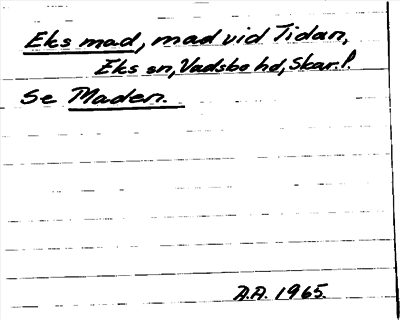 Eks mad, mad vid Tidan,
Eks sn, Vadsbo hd, Skar.l.
Se Maden.
A.A. 1965.